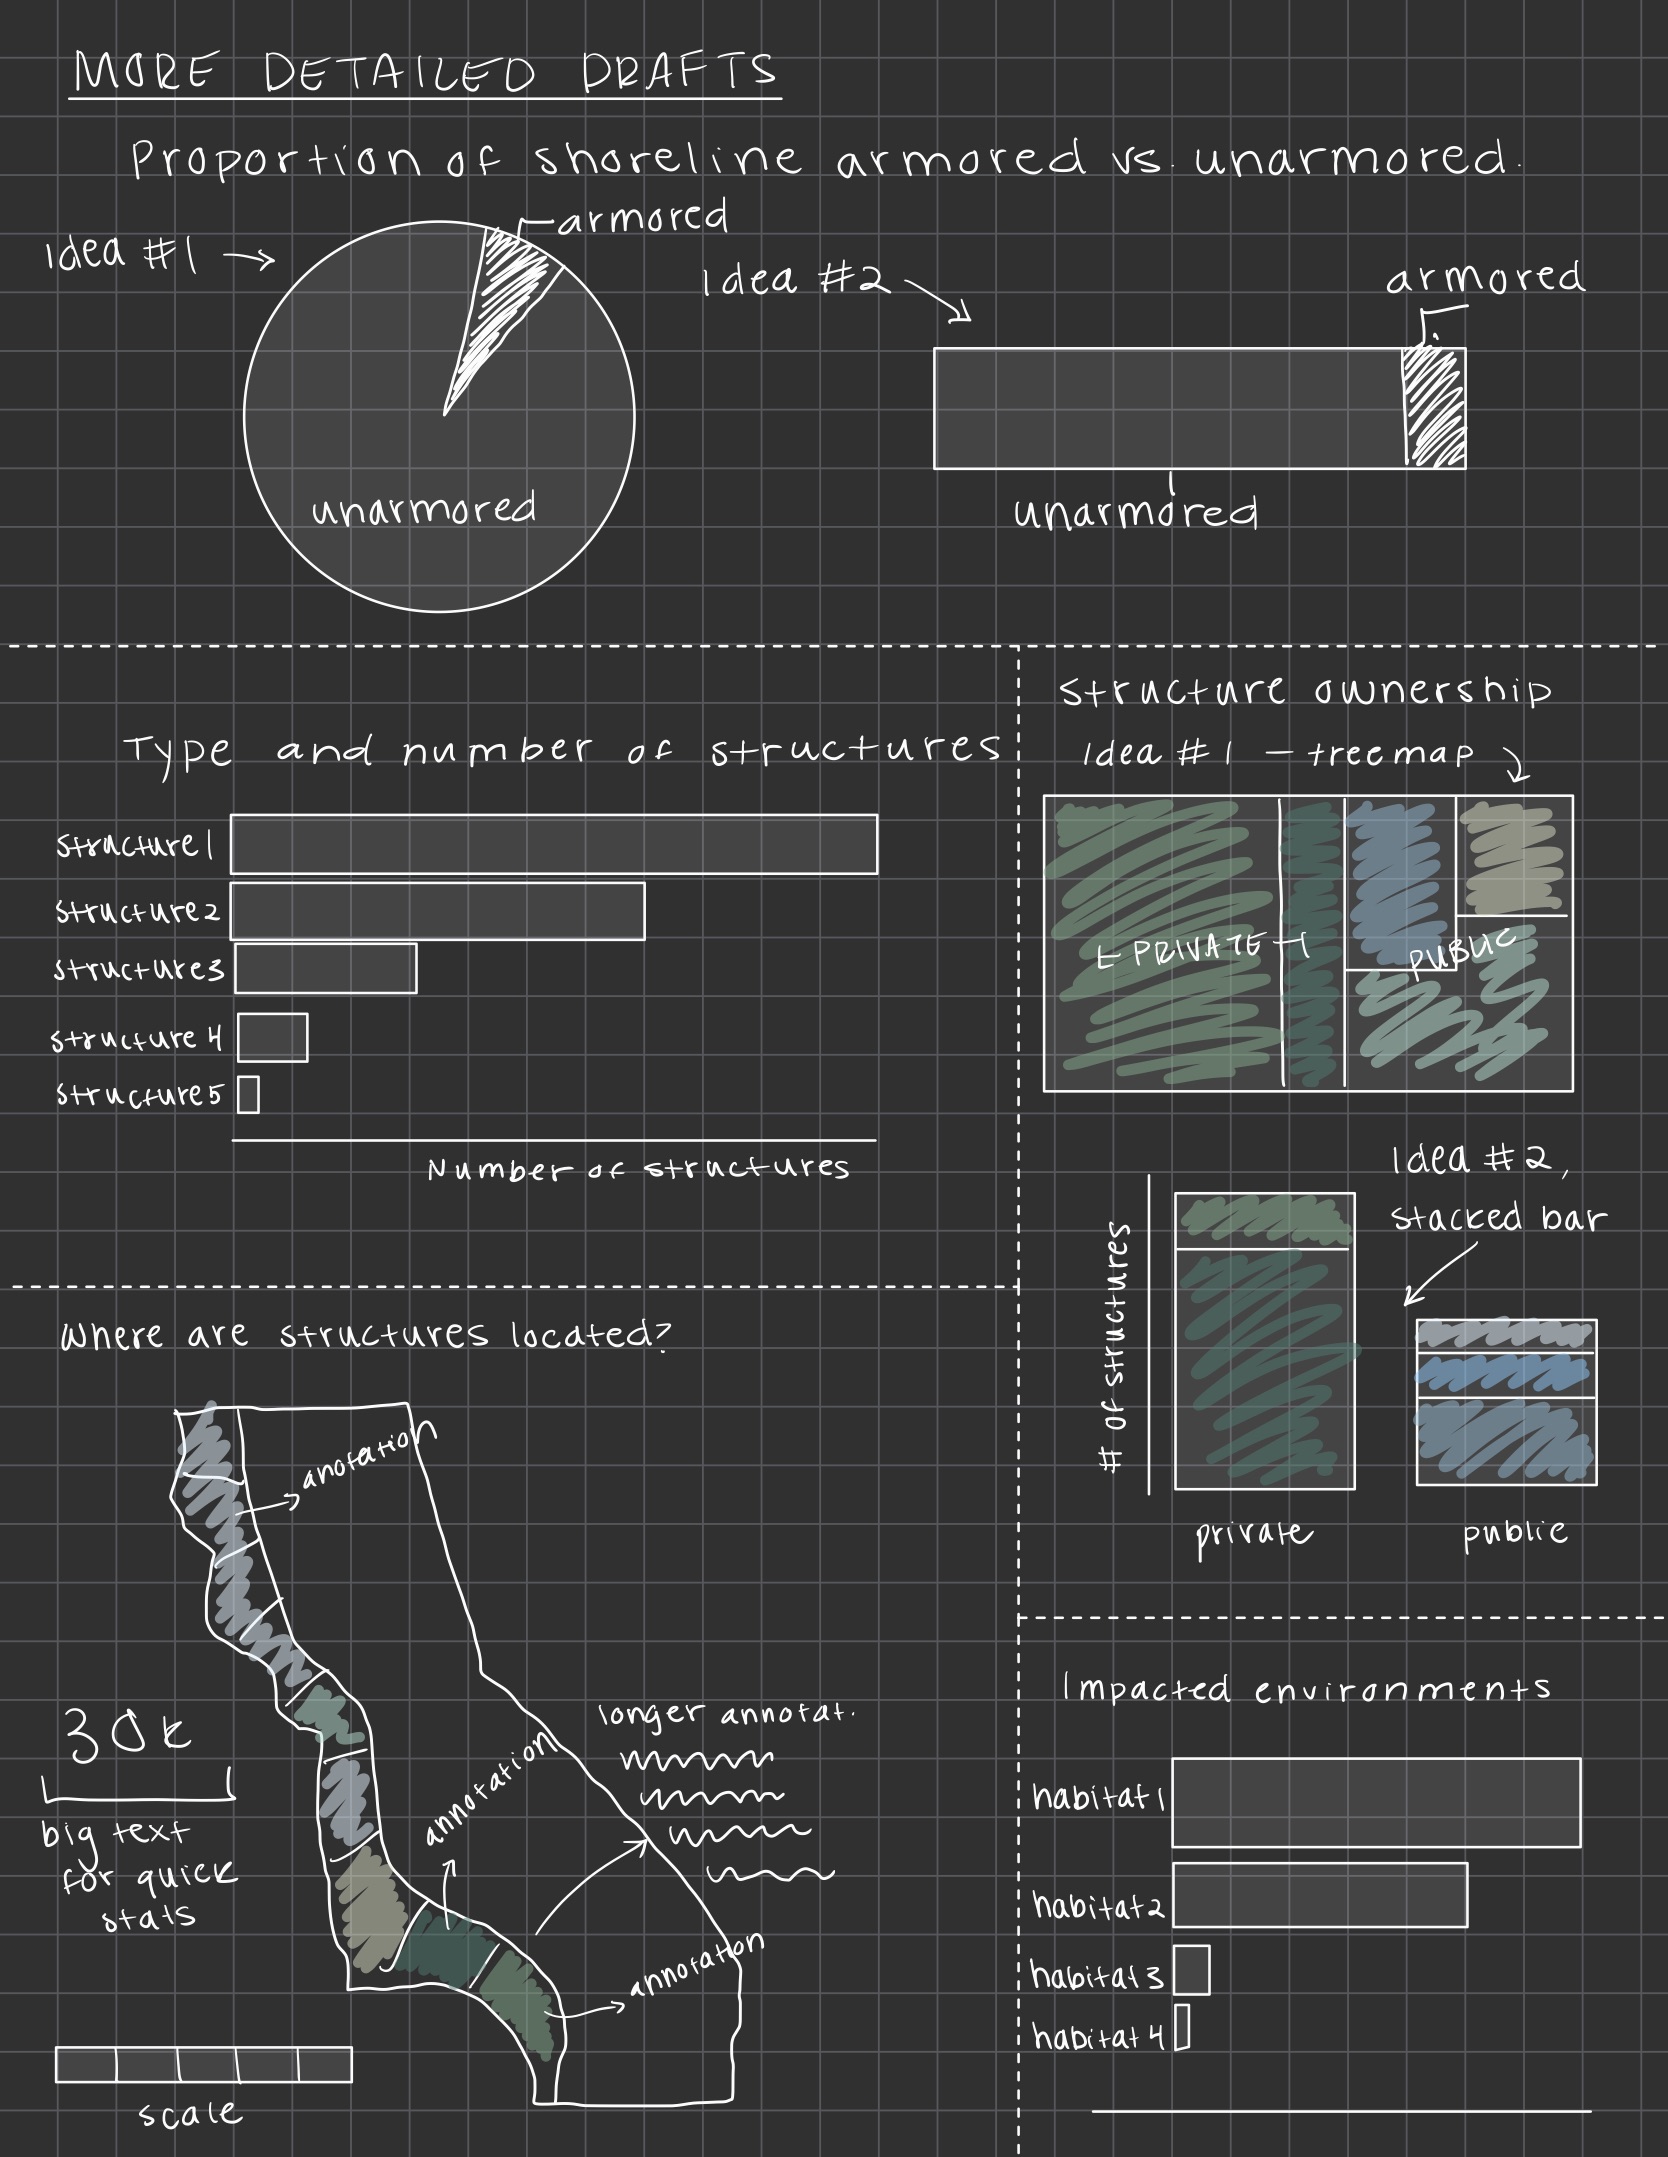 MORE DETAILED DRAFTS
Proportion of shoreline armored vs. unarmored.
Idea #1
armored
unarmored
Idea #2
armored
unarmored
Type and number of structures
structure1
structure2
structure3
structure 4
structure5
Number of structures
structure ownership
Idea #1 – treemap
PRIVATE
PUBLIC
Idea #2,
stacked bar
# of structures
private
public
Where are structures located?
anotation
30k
big text
for quick
stats
longer annotat.
annotation
annotation
scale
Impacted environments
habitat1
habitat2
habitat3
habitat4